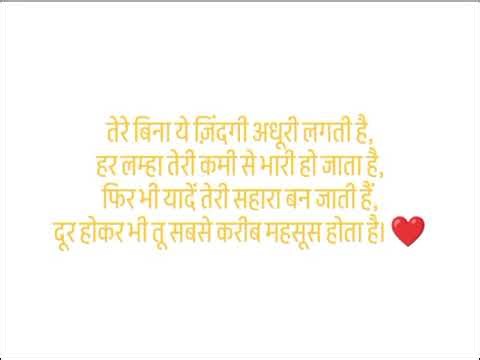 तेरे बिना ये ज़िंदगी अधूरी लगती है,
हर लम्हा तेरी कमी से भारी हो जाता है,
फिर भी यादें तेरी सहारा बन जाती हैं,
दूर होकर भी तू सबसे करीब महसूस होता है। ❤️